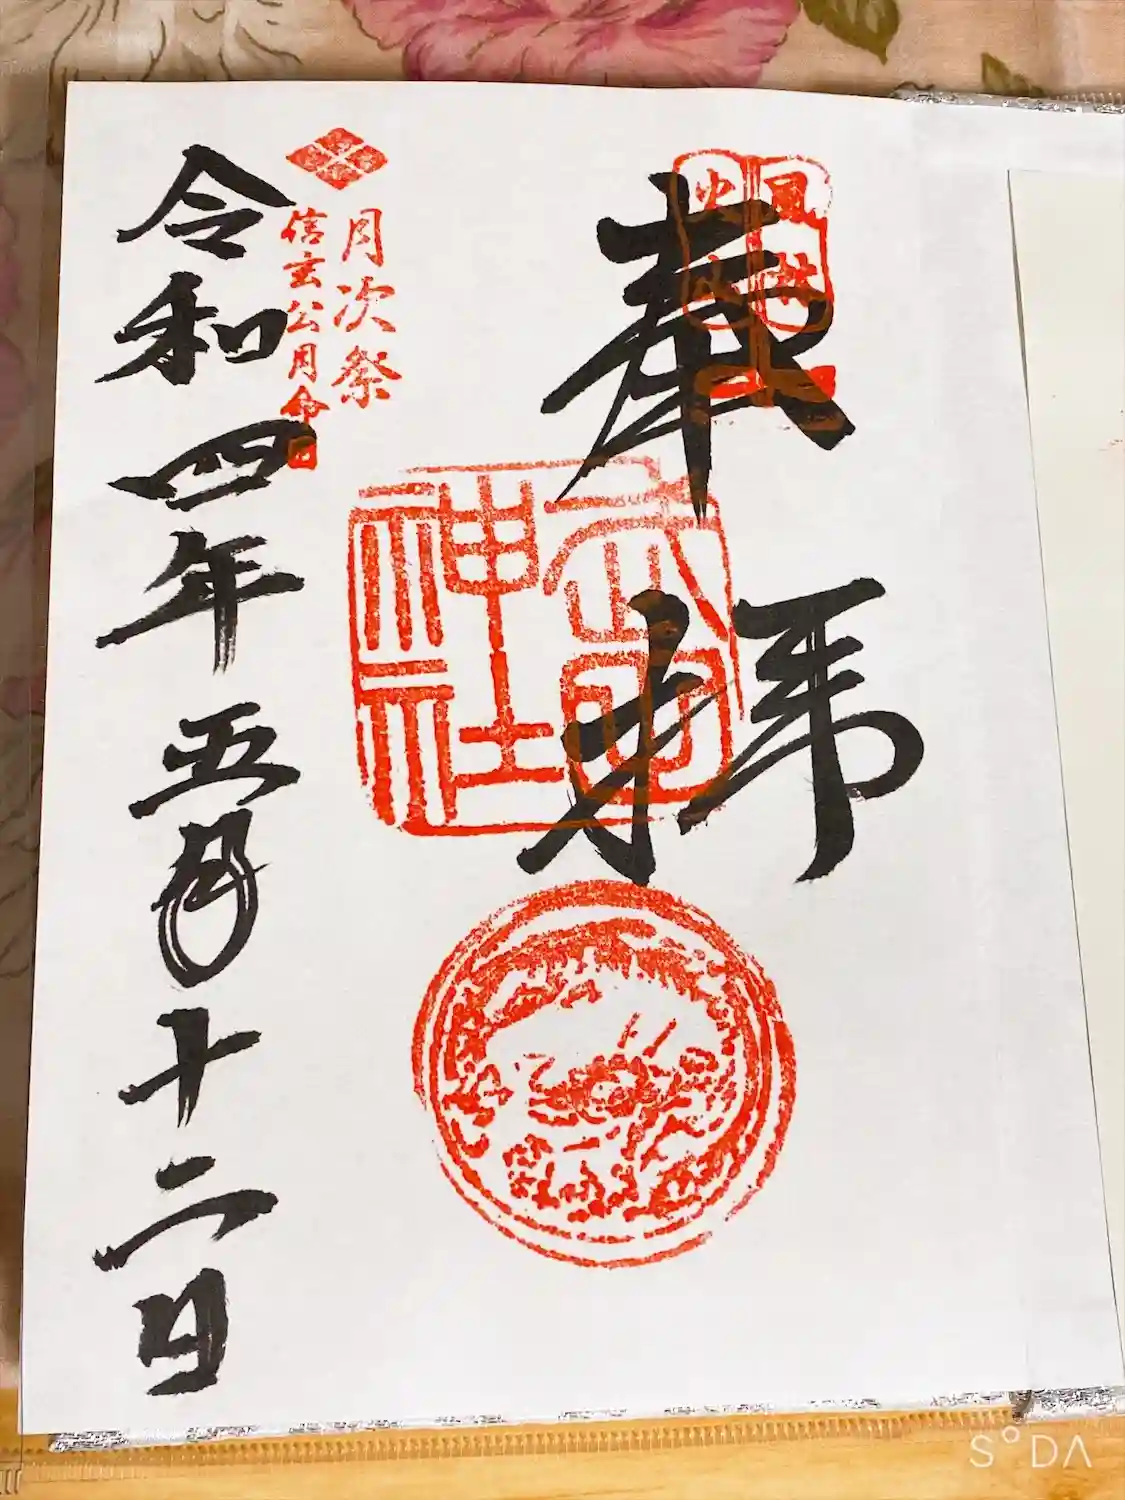 奉拝
風林
火山
武田
神社
月次祭
信玄公月命日
令和四年五月十二日
SODA